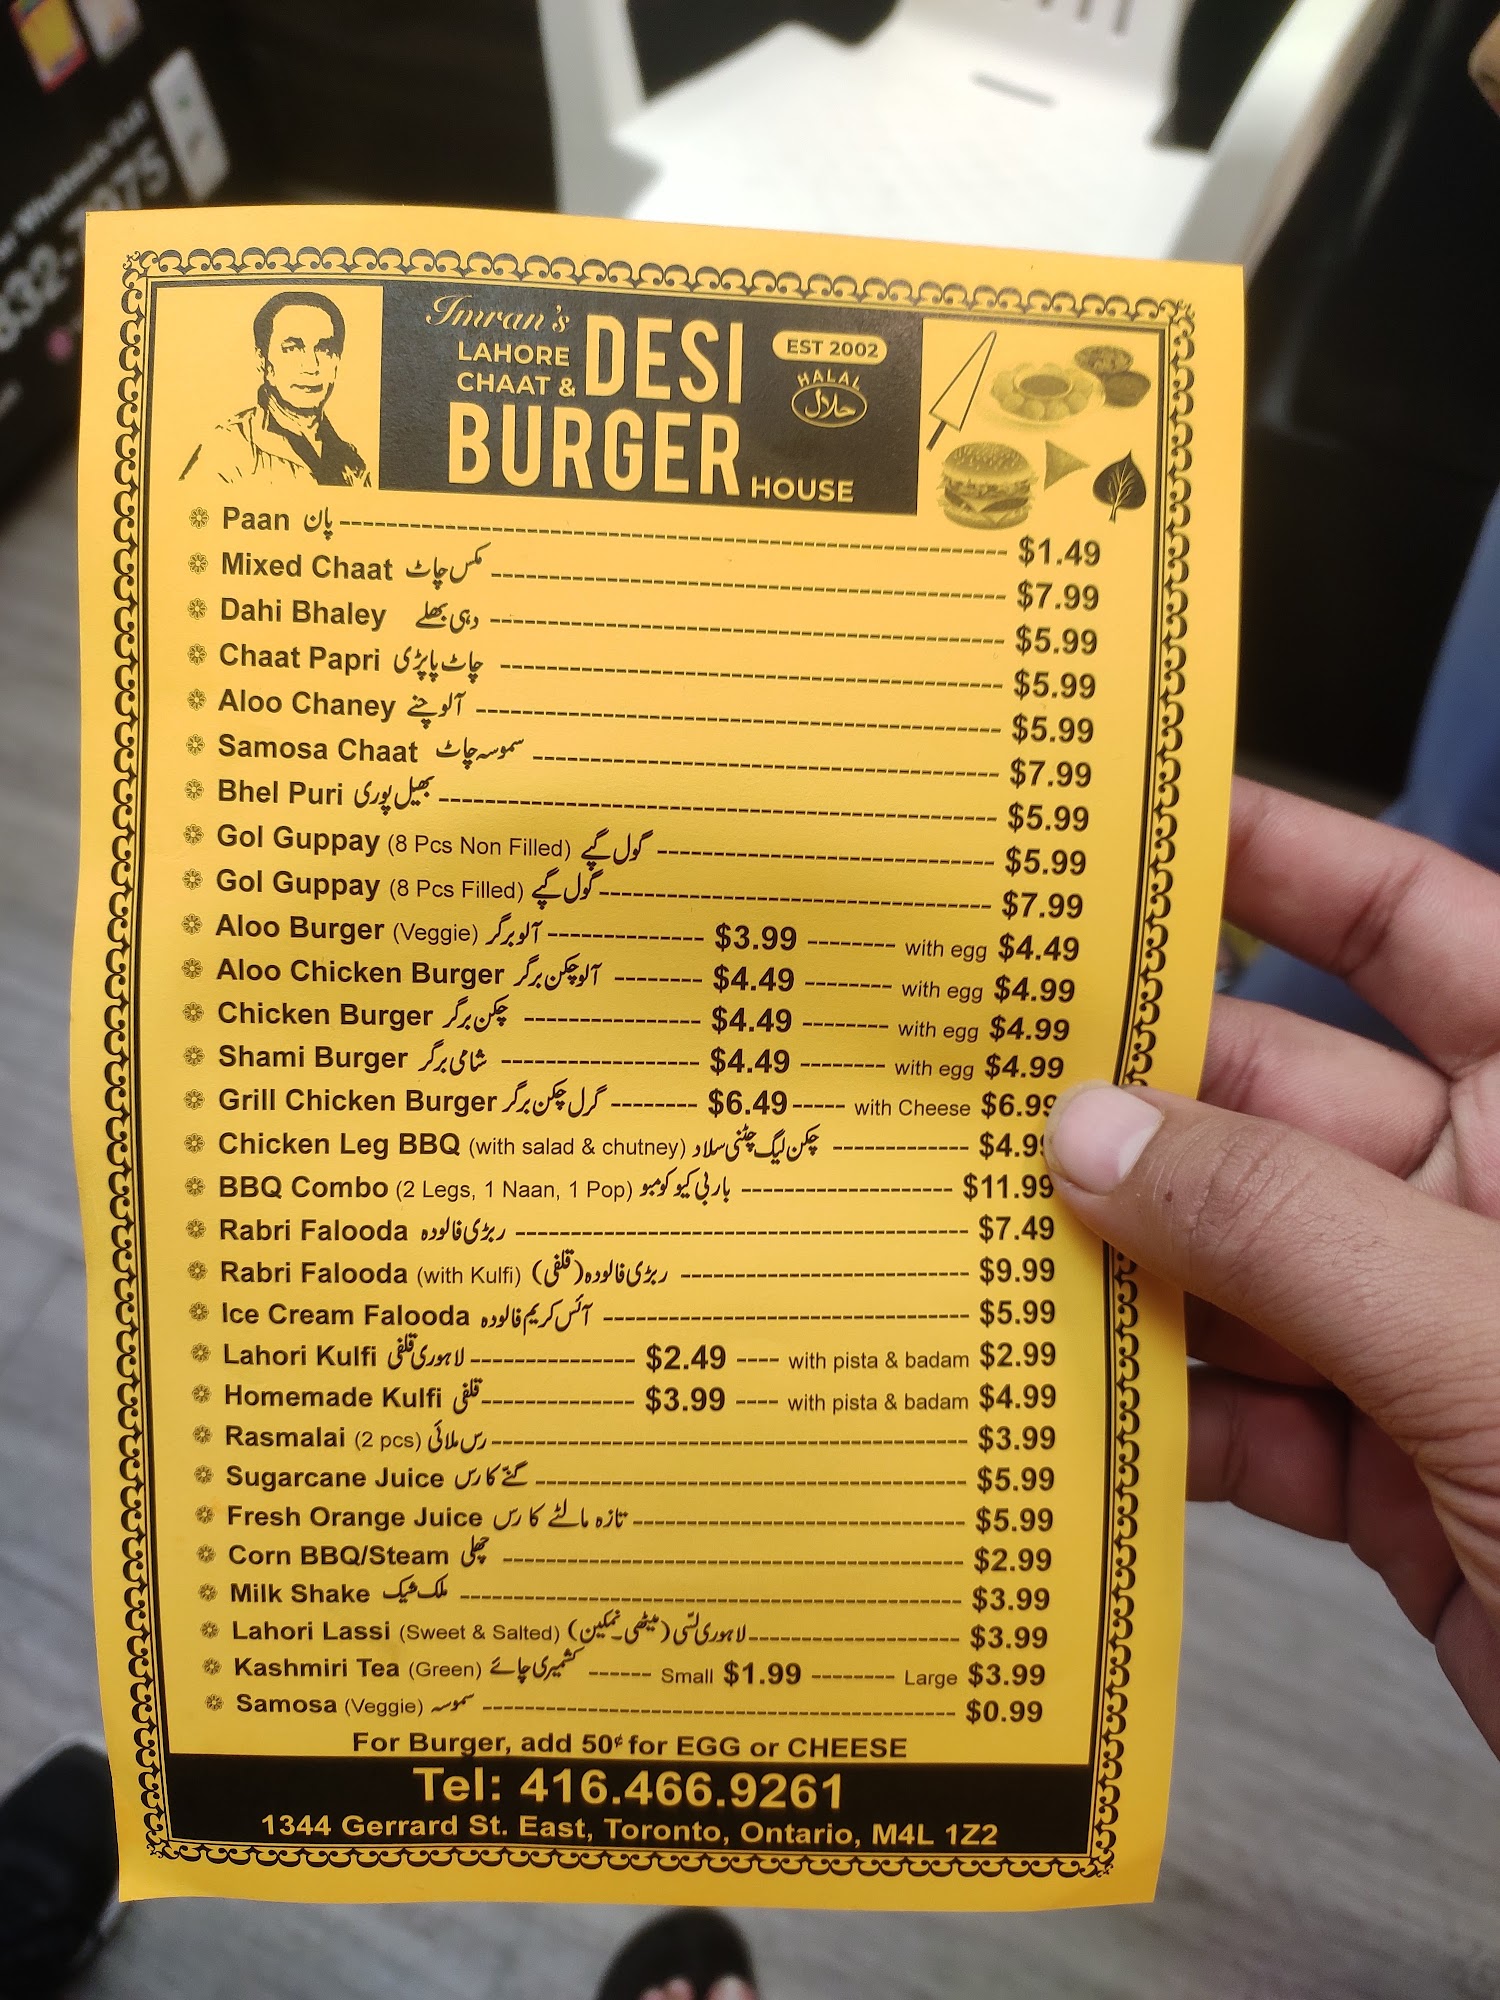 Imran's
LAHORE
CHAAT & DESI
BURGER HOUSE
EST 2002
HALAL
حلال
Paan پان ---- $1.49
Mixed Chaat مکس چاٹ ---- $7.99
Dahi Bhaley دہی بھلے ---- $5.99
Chaat Papri چاٹ پاپڑی ---- $5.99
Aloo Chaney آلو چنے ---- $5.99
Samosa Chaat سموسہ چاٹ ---- $7.99
Bhel Puri بھیل پوری ---- $5.99
Gol Guppay (8 Pcs Non Filled) گول گپے ---- $5.99
Gol Guppay (8 Pcs Filled) گول گپے ---- $7.99
Aloo Burger (Veggie) آلو برگر ---- $3.99 ---- with egg $4.49
Aloo Chicken Burger آلو چکن برگر ---- $4.49 ---- with egg $4.99
Chicken Burger چکن برگر ---- $4.49 ---- with egg $4.99
Shami Burger شامی برگر ---- $4.49 ---- with egg $4.99
Grill Chicken Burger گرل چکن برگر ---- $6.49 ---- with Cheese $6.99
Chicken Leg BBQ (with salad & chutney) چکن لیگ چٹنی سلاد ---- $4.99
BBQ Combo (2 Legs, 1 Naan, 1 Pop) باربی کیو کومبو ---- $11.99
Rabri Falooda ربڑی فالودہ ---- $7.49
Rabri Falooda (with Kulfi) ربڑی فالودہ (قلفی) ---- $9.99
Ice Cream Falooda آئس کریم فالودہ ---- $5.99
Lahori Kulfi لاہوری قلفی ---- $2.49 ---- with pista & badam $2.99
Homemade Kulfi قلفی ---- $3.99 ---- with pista & badam $4.99
Rasmalai (2 pcs) رس ملائی ---- $3.99
Sugarcane Juice گنے کا رس ---- $5.99
Fresh Orange Juice تازہ مالٹے کا رس ---- $5.99
Corn BBQ/Steam چھلی ---- $2.99
Milk Shake ملک شیک ---- $3.99
Lahori Lassi (Sweet & Salted) لاہوری لسّی (میٹھی۔نمکین) ---- $3.99
Kashmiri Tea (Green) کشمیری چائے ---- Small $1.99 ---- Large $3.99
Samosa (Veggie) سموسہ ---- $0.99
For Burger, add 50¢ for EGG or CHEESE
Tel: 416.466.9261
1344 Gerrard St. East, Toronto, Ontario, M4L 1Z2